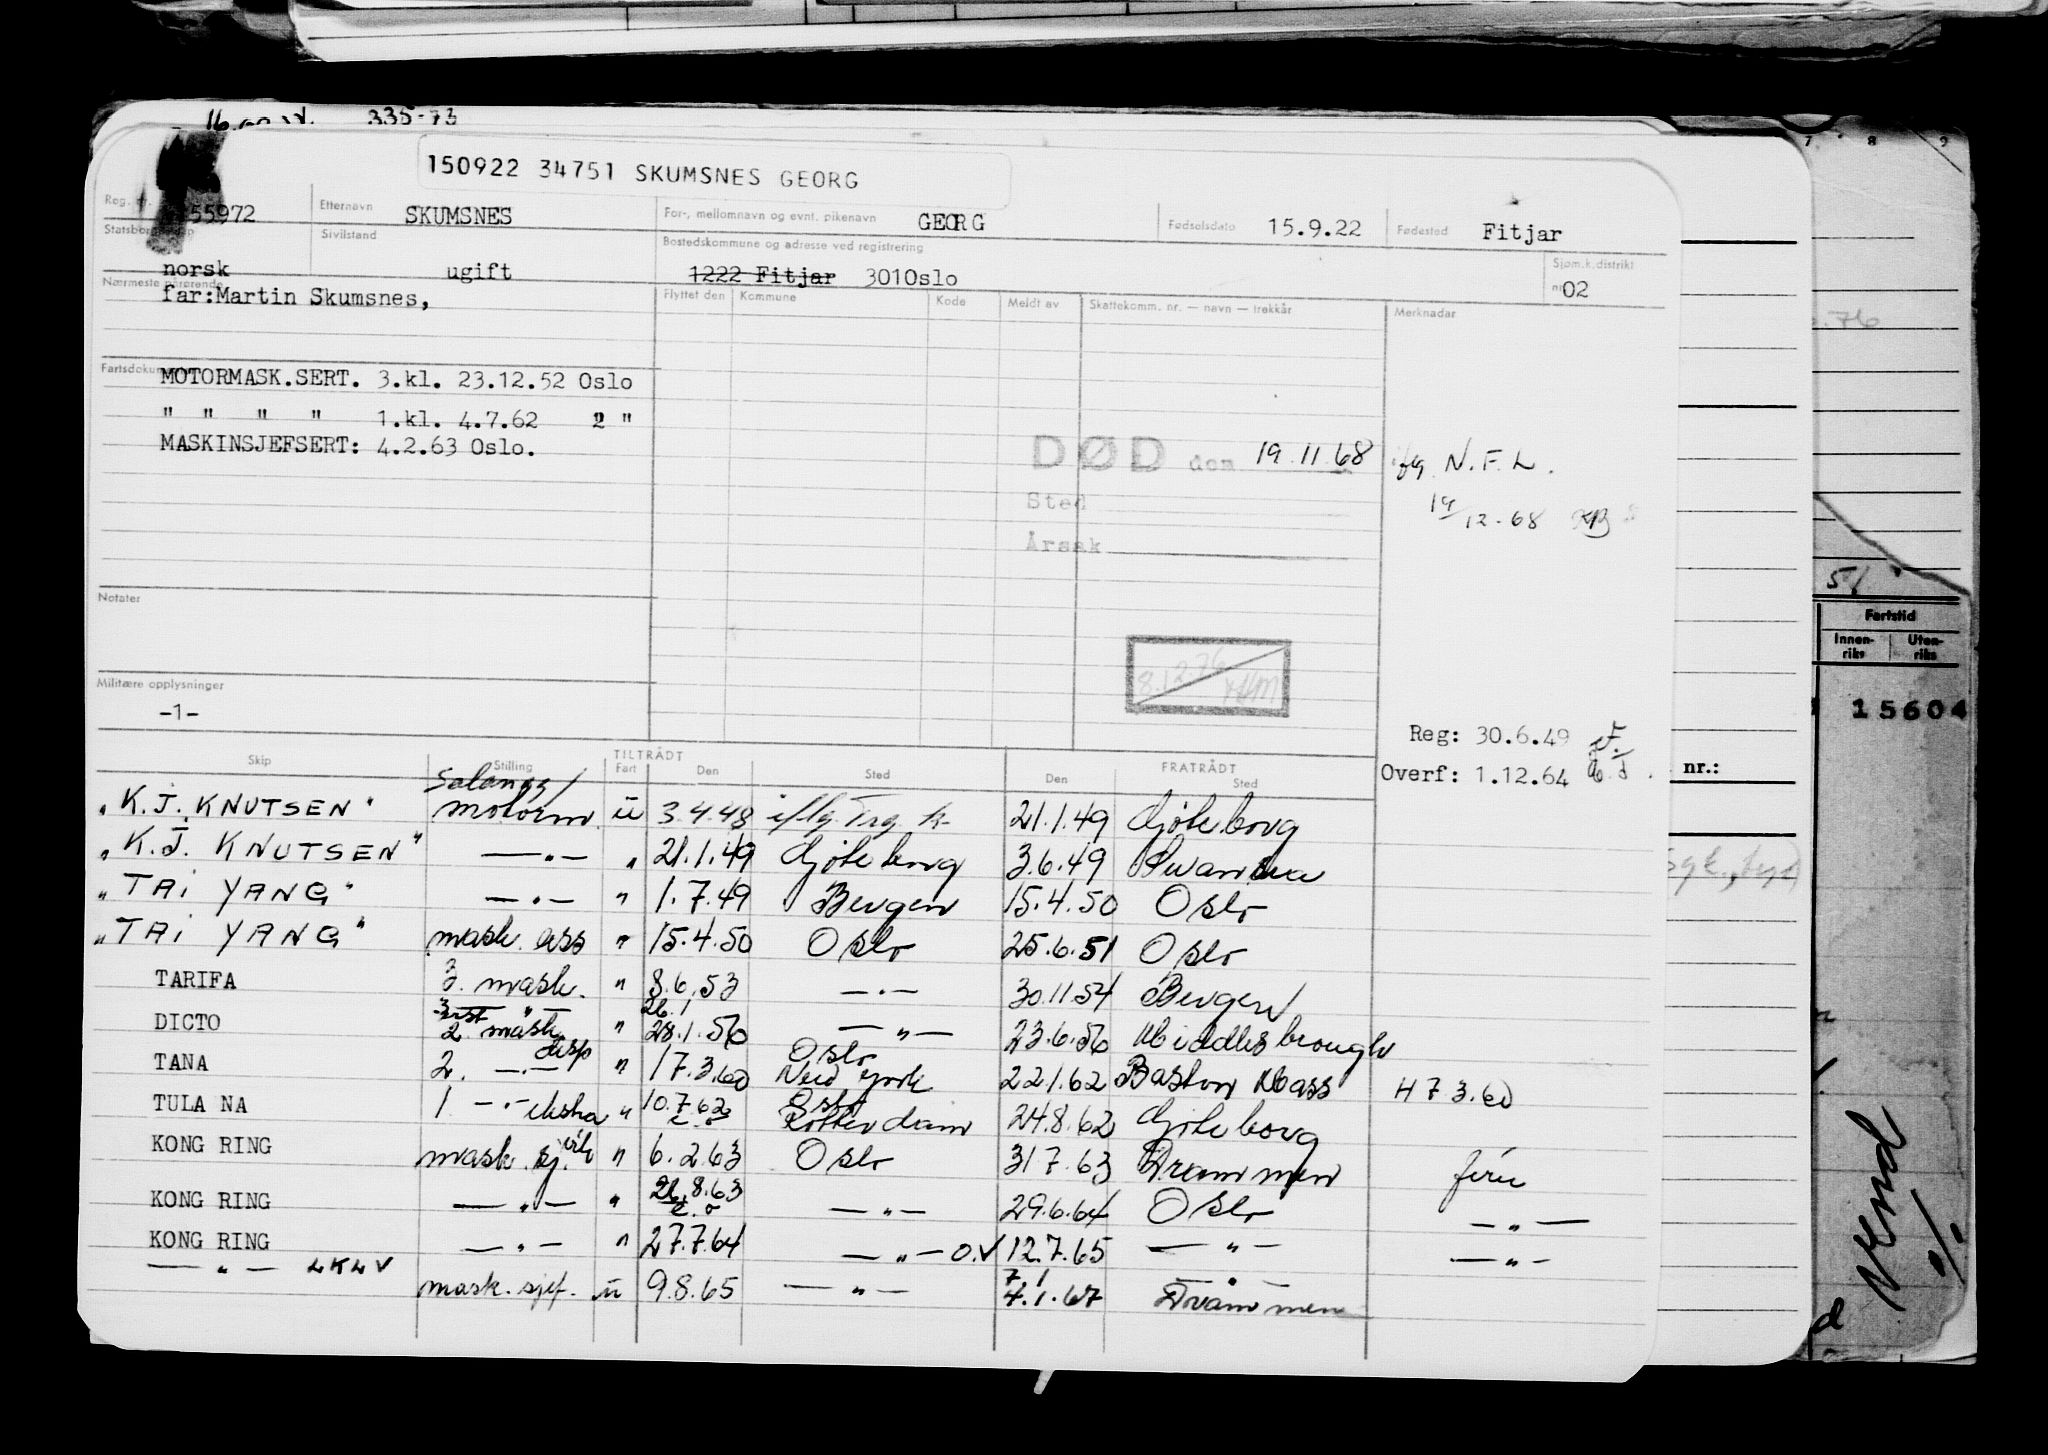 335-73
150922 34751 SKUMSNES GEORG
Reg. 55972 Etternavn SKUMSNES For-, mellomnavn og evnt. pikenavn GEORG Fødselsdato 15.9.22 Fødested Fitjar
Statsborgerskap norsk Sivilstand ugift Bostedskommune og adresse ved registrering 1222 Fitjar 301Oslo Sjøm.k.distrikt nr 02
Nærmeste pårørende Flyttet den Kommune Kode Meldt av Skattekomm. nr. — navn — trekkår Merknadar
far:Martin Skumsnes,
MOTORMASK.SERT. 3.kl. 23.12.52 Oslo
" " " " 1.kl. 4.7.62 2 "
MASKINSJEFSERT: 4.2.63 Oslo.
DØD den 19.11.68 N.F.L.
Sted 19/12-68
Årsak
Notater
8.12.76
Militære opplysninger
-1-
Reg: 30.6.49
Overf: 1.12.64
TILTRÅDT FRATRÅDT
Skip Stilling Fart Den Sted Den Sted
"K.J. KNUTSEN" motorm. u 3.4.48 iflg. 21.1.49 Gjøteborg
"K.J. KNUTSEN" —"— " 21.1.49 Gjøteborg 3.6.49 Swansea
"TAI YANG" —"— " 1.7.49 Bergen 15.4.50 Oslo
"TAI YANG" mask. ass " 15.4.50 Oslo 25.6.51 Oslo
TARIFA 3. mask. " 8.6.53 —"— 30.11.54 Bergen
26.1
DICTO 2. mask " 28.1.56 —"— 23.6.56 Middlesbrough
TANA 2. —"— disp " 17.3.60 Oslo New York 22.1.62 Boston Mass H 7.3.60
TULANA 1. —"— ekstra " 10.7.62 Oslo Rotterdam 24.8.62 Gjøteborg
KONG RING mask.sj. vik " 6.2.63 Oslo 31.7.63 Drammen ferie
KONG RING —"— " 26.8.63 —"— 29.6.64 Oslo —"—
KONG RING —"— " 27.7.64 —"— O.V 12.7.65 —"— —"—
—"— LKLV mask. sjef. u 9.8.65 —"— 7.1 4.1.67 Drammen
7 8 9
.76
51
Fartstid
Innen-riks Uten-riks
15604
nr.:
Vend